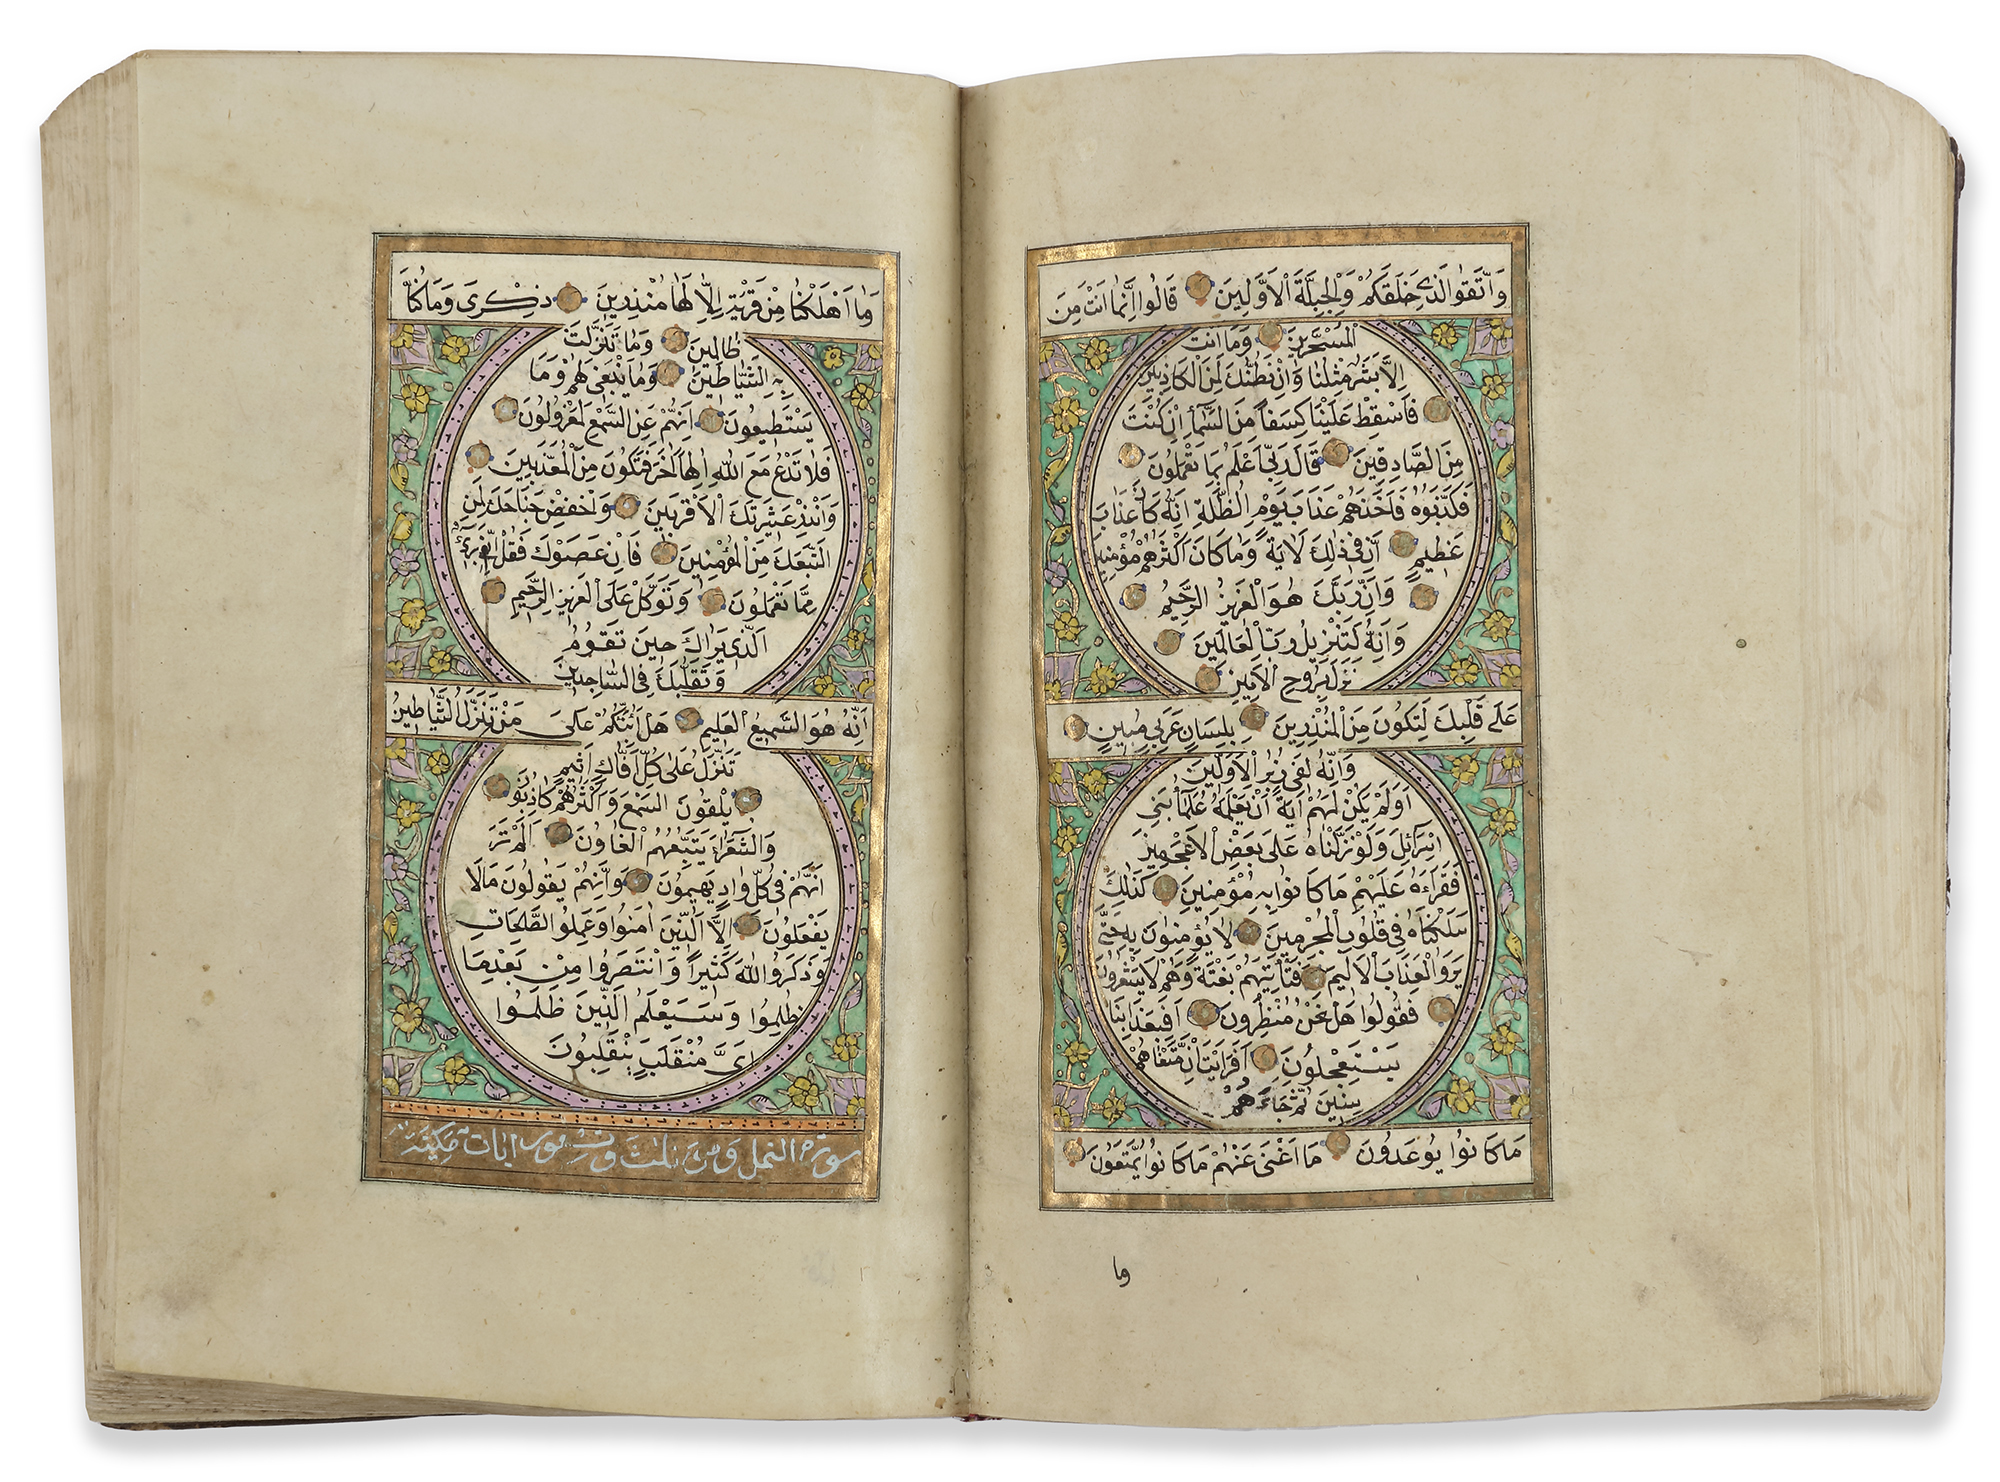 وَاتَّقُوا الَّذِي خَلَقَكُمْ وَالْجِبِلَّةَ الْاَوَّلِينَ قَالُوا اِنَّمَا اَنْتَ مِنَ
الْمُسَحَّرِينَ وَمَا اَنْتَ
اِلَّا بَشَرٌ مِثْلُنَا وَاِنْ نَظُنُّكَ لَمِنَ الْكَاذِبِينَ
فَاَسْقِطْ عَلَيْنَا كِسَفًا مِنَ السَّمَاءِ اِنْ كُنْتَ
مِنَ الصَّادِقِينَ قَالَ رَبِّي اَعْلَمُ بِمَا تَعْمَلُونَ
فَكَذَّبُوهُ فَاَخَذَهُمْ عَذَابُ يَوْمِ الظُّلَّةِ اِنَّهُ كَانَ عَذَابَ يَوْمٍ
عَظِيمٍ اِنَّ فِي ذٰلِكَ لَاٰيَةً وَمَا كَانَ اَكْثَرُهُمْ مُؤْمِنِينَ
وَاِنَّ رَبَّكَ لَهُوَ الْعَزِيزُ الرَّحِيمُ
وَاِنَّهُ لَتَنْزِيلُ رَبِّ الْعَالَمِينَ
نَزَلَ بِهِ الرُّوحُ الْاَمِينُ
عَلَى قَلْبِكَ لِتَكُونَ مِنَ الْمُنْذِرِينَ بِلِسَانٍ عَرَبِيٍّ مُبِينٍ
وَاِنَّهُ لَفِي زُبُرِ الْاَوَّلِينَ
اَوَلَمْ يَكُنْ لَهُمْ اٰيَةً اَنْ يَعْلَمَهُ عُلَمَاءُ بَنِي
اِسْرَائِلَ وَلَوْ نَزَّلْنَاهُ عَلَى بَعْضِ الْاَعْجَمِينَ
فَقَرَاَهُ عَلَيْهِمْ مَا كَانُوا بِهِ مُؤْمِنِينَ كَذٰلِكَ
سَلَكْنَاهُ فِي قُلُوبِ الْمُجْرِمِينَ لَا يُؤْمِنُونَ بِهِ حَتَّى
يَرَوُا الْعَذَابَ الْاَلِيمَ فَتَاْتِيَهُمْ بَغْتَةً وَهُمْ لَا يَشْعُرُونَ
فَيَقُولُوا هَلْ نَحْنُ مُنْظَرُونَ اَفَبِعَذَابِنَا
يَسْتَعْجِلُونَ اَفَرَاَيْتَ اِنْ مَتَّعْنَاهُمْ
سِنِينَ ثُمَّ جَاءَهُمْ
مَا كَانُوا يُوعَدُونَ مَا اَغْنَى عَنْهُمْ مَا كَانُوا يُمَتَّعُونَ
وما
وَمَا اَهْلَكْنَا مِنْ قَرْيَةٍ اِلَّا لَهَا مُنْذِرُونَ ذِكْرَى وَمَا كُنَّا
ظَالِمِينَ وَمَا تَنَزَّلَتْ
بِهِ الشَّيَاطِينُ وَمَا يَنْبَغِي لَهُمْ وَمَا
يَسْتَطِيعُونَ اِنَّهُمْ عَنِ السَّمْعِ لَمَعْزُولُونَ
فَلَا تَدْعُ مَعَ اللّٰهِ اِلٰهًا اٰخَرَ فَتَكُونَ مِنَ الْمُعَذَّبِينَ
وَاَنْذِرْ عَشِيرَتَكَ الْاَقْرَبِينَ وَاخْفِضْ جَنَاحَكَ لِمَنِ
اتَّبَعَكَ مِنَ الْمُؤْمِنِينَ فَاِنْ عَصَوْكَ فَقُلْ اِنِّي بَرِيءٌ
مِمَّا تَعْمَلُونَ وَتَوَكَّلْ عَلَى الْعَزِيزِ الرَّحِيمِ
الَّذِي يَرَاكَ حِينَ تَقُومُ
وَتَقَلُّبَكَ فِي السَّاجِدِينَ
اِنَّهُ هُوَ السَّمِيعُ الْعَلِيمُ هَلْ اُنَبِّئُكُمْ عَلَى مَنْ تَنَزَّلُ الشَّيَاطِينُ
تَنَزَّلُ عَلَى كُلِّ اَفَّاكٍ اَثِيمٍ
يُلْقُونَ السَّمْعَ وَاَكْثَرُهُمْ كَاذِبُونَ
وَالشُّعَرَاءُ يَتَّبِعُهُمُ الْغَاوُونَ اَلَمْ تَرَ
اَنَّهُمْ فِي كُلِّ وَادٍ يَهِيمُونَ وَاَنَّهُمْ يَقُولُونَ مَا لَا
يَفْعَلُونَ اِلَّا الَّذِينَ اٰمَنُوا وَعَمِلُوا الصَّالِحَاتِ
وَذَكَرُوا اللّٰهَ كَثِيرًا وَانْتَصَرُوا مِنْ بَعْدِ مَا
ظُلِمُوا وَسَيَعْلَمُ الَّذِينَ ظَلَمُوا
اَيَّ مُنْقَلَبٍ يَنْقَلِبُونَ
سورة النمل ثلث ايات مكية